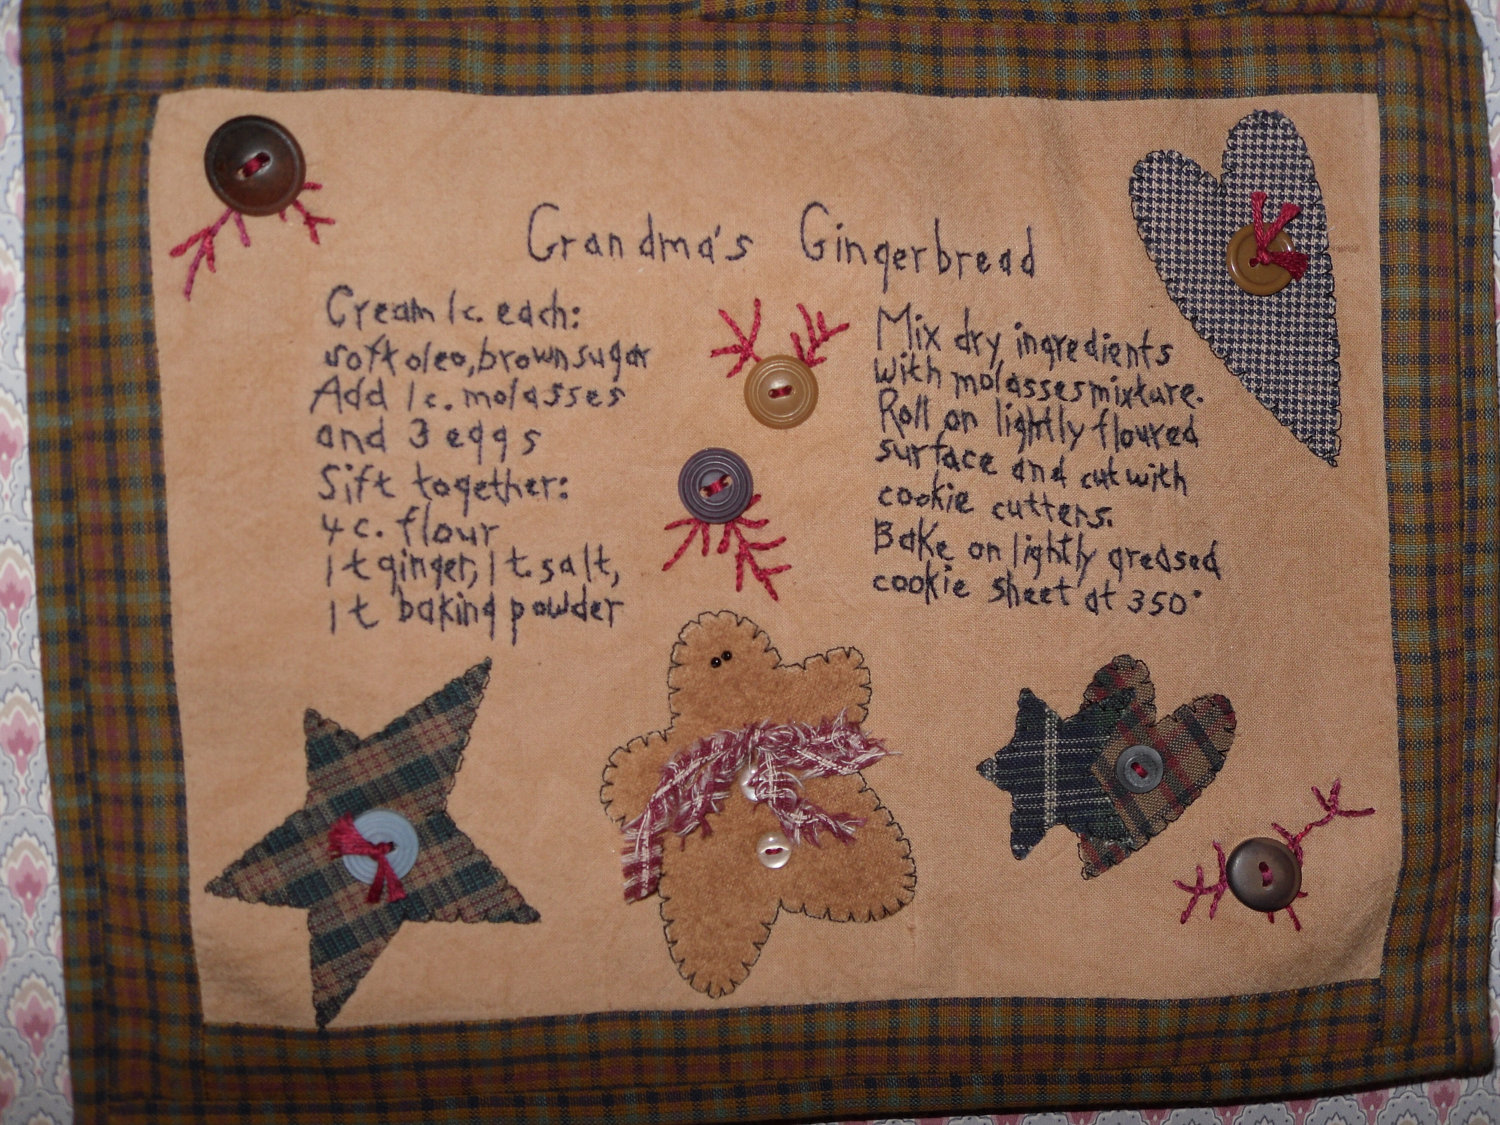 Grandma's Gingerbread
Cream 1 c. each:
soft oleo, brown sugar
Add 1 c. molasses
and 3 eggs
Sift together:
4 c. flour
1 t ginger, 1 t. salt,
1 t baking powder
Mix dry ingredients
with molasses mixture.
Roll on lightly floured
surface and cut with
cookie cutters.
Bake on lightly greased
cookie sheet at 350°